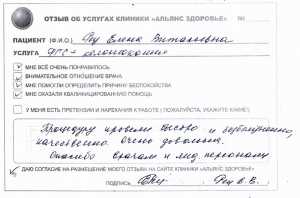 ОТЗЫВ ОБ УСЛУГАХ КЛИНИКИ «АЛЬЯНС ЗДОРОВЬЕ» №
ПАЦИЕНТ (Ф.И.О.) Елена Витальевна
УСЛУГА ФГС +
МНЕ ВСЁ ОЧЕНЬ ПОНРАВИЛОСЬ
ВНИМАТЕЛЬНОЕ ОТНОШЕНИЕ ВРАЧА
МНЕ ПОМОГЛИ ОПРЕДЕЛИТЬ ПРИЧИНУ БЕСПОКОЙСТВА
МНЕ ОКАЗАЛИ КВАЛИФИЦИРОВАННУЮ ПОМОЩЬ
У МЕНЯ ЕСТЬ ПРЕТЕНЗИИ И НАРЕКАНИЯ К РАБОТЕ (ПОЖАЛУЙСТА, УКАЖИТЕ КАКИЕ)
Процедуру провели быстро и
качественно. Очень довольна.
Спасибо врачам и мед. персоналу
ДАЮ СОГЛАСИЕ НА РАЗМЕЩЕНИЕ МОЕГО ОТЗЫВА НА САЙТЕ КЛИНИКИ «АЛЬЯНС ЗДОРОВЬЕ»
ПОДПИСЬ